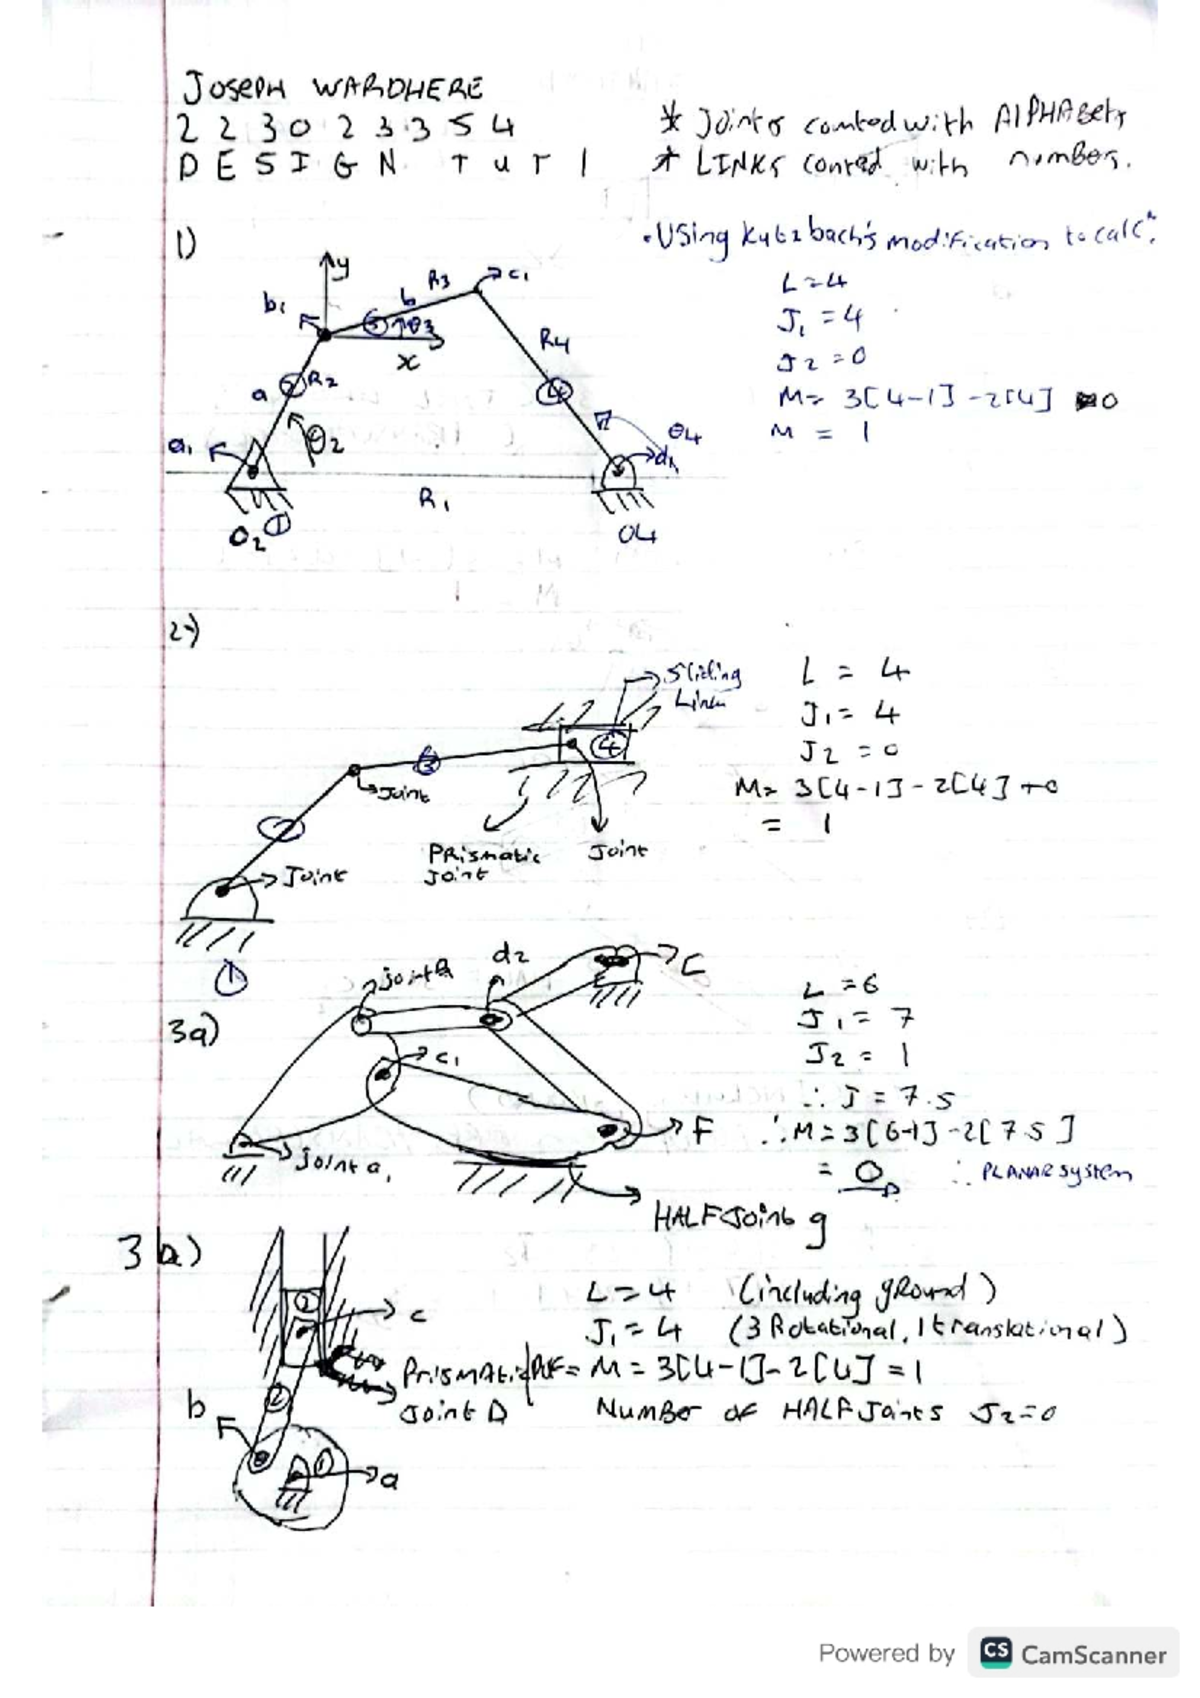 JOSEPH WARDHERE
2 2 3 0 2 3 3 5 4
DESIGN TUT 1
* Joints counted with AlPHABets
* LINKS counted with numbers.
1)
• USing Kutzbach's modification to calc.
L = 4
J1 = 4
J2 = 0
M = 3[4-1] - 2[4] 0
M = 1
y
b1
b
R3
c1
3
θ3
x
R4
a
2
R2
4
θ2
a1
θ4
d1
R1
O2
1
O4
2)
Sliding
Link
L = 4
J1 = 4
J2 = 0
M = 3[4-1] - 2[4] + 0
= 1
4
3
Joint
2
Prismatic
Joint
Joint
Joint
1
3a)
joint B
d2
C
c1
F
joint a1
HALF Joint g
L = 6
J1 = 7
J2 = 1
∴ J = 7.5
∴ M = 3[6-1] - 2[7.5]
= 0 ∴ PLANAR system
3 b)
2
c
L = 4 (including gRound)
J1 = 4 (3 Rotational, 1 translational)
Prismatic
Joint D
M = 3[4-1] - 2[4] = 1
NumBer of HALF Joints J2 = 0
2
b
1
a
Powered by CS CamScanner